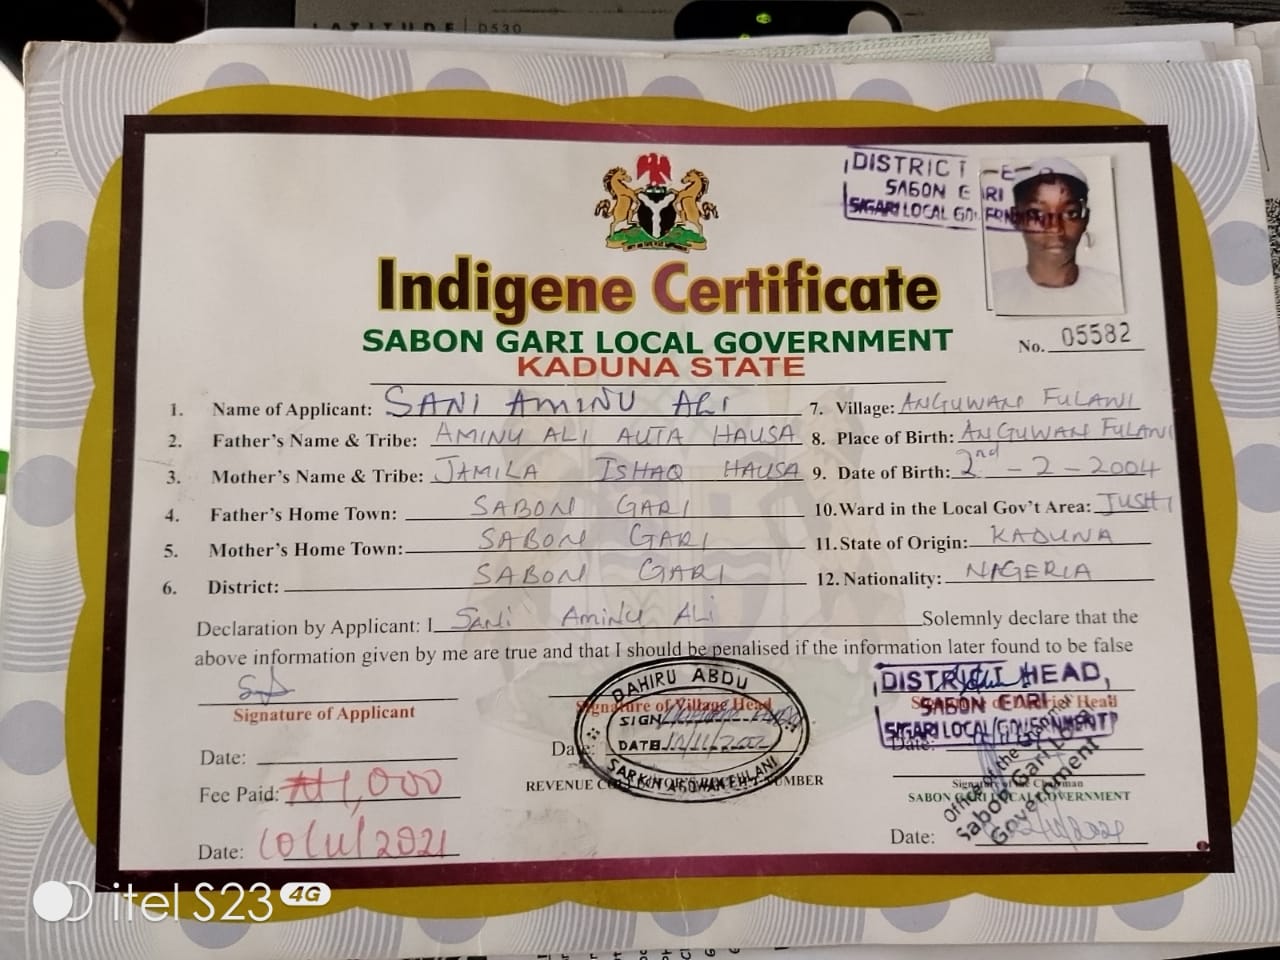 LATITUDE | D530
DISTRICT
SABON GARI
S/GARI LOCAL GOVERNMENT
Indigene Certificate
SABON GARI LOCAL GOVERNMENT
KADUNA STATE
No. 05582
1. Name of Applicant: SANI AMINU ALI
7. Village: ANGUWAN FULANI
2. Father's Name & Tribe: AMINU ALI AUTA HAUSA
8. Place of Birth: ANGUWAN FULANI
3. Mother's Name & Tribe: JAMILA ISHAQ HAUSA
9. Date of Birth: 2nd - 2 - 2004
4. Father's Home Town: SABON GARI
10. Ward in the Local Gov't Area: JUSHI
5. Mother's Home Town: SABON GARI
11. State of Origin: KADUNA
6. District: SABON GARI
12. Nationality: NAGERIA
Declaration by Applicant: I Sani Aminu ALi Solemnly declare that the
above information given by me are true and that I should be penalised if the information later found to be false
Signature of Applicant
Signature of Village Head
DAHIRU ABDU
SIGN
DATE
DISTRICT HEAD,
SABON GARI
S/GARI LOCAL GOVERNMENT
Signature of District Head
Date:
Date:
Date:
Fee Paid: ₦1,000
REVENUE NUMBER
Signature of the Chairman
SABON GARI LOCAL GOVERNMENT
Office of the Chairman
Sabon Gari Local
Government
Date: 10/11/2021
Date:
itel S23 4G